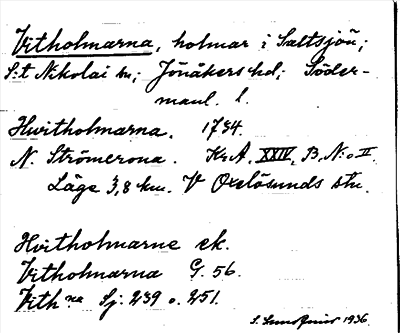 Vitholmarna, holmar i Saltsjön;
S:t Nikolai sn; Jönåkers hd; Söder-
manl. l.
Hvitholmarna. 1734.
N. Strömerona. Kr.A. XXIV, B. N:o II
Läge 3,8 km. V Oxelösunds stn.
Hvitholmarne ek.
Vitholmarna G. 56.
Vith na Sj. 239 o. 251.
S. 1936